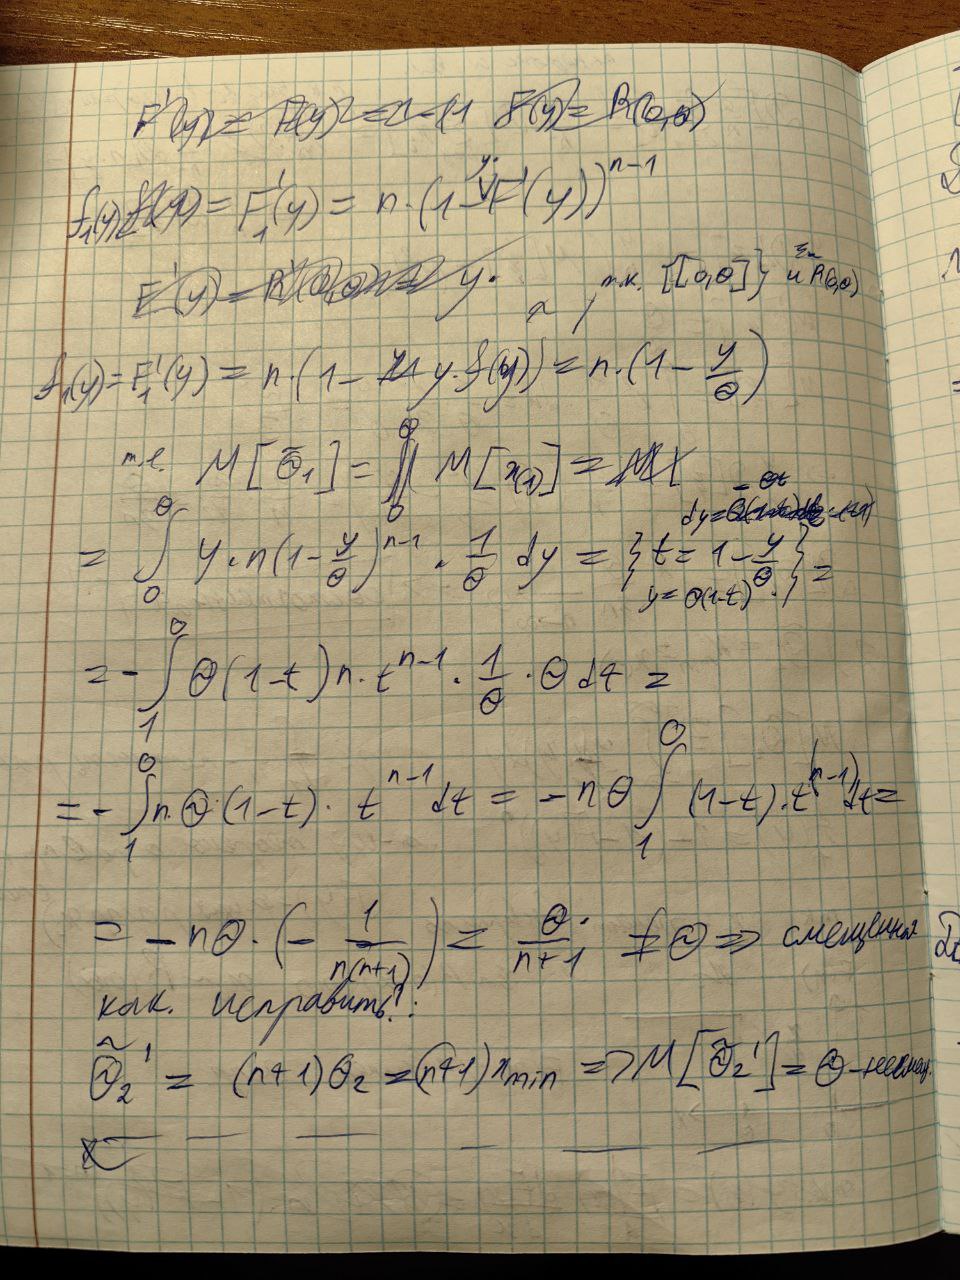 f₁(y) = F₁'(y) = n·(1-F(y))ⁿ⁻¹
т.к. [[0,θ]} и R(0,θ)
f₁(y) = F₁'(y) = n·(1 - y·f(y)) = n·(1 - y/θ)
т.е. M[θ̃₁] = M[x₍₁₎] =
= ∫₀^θ y·n(1 - y/θ)ⁿ⁻¹ · 1/θ dy = {t = 1 - y/θ, y = θ(1-t)} =
= -∫₁⁰ θ(1-t)n·tⁿ⁻¹ · 1/θ · θ dt =
= -∫₁⁰ n·θ·(1-t)·tⁿ⁻¹ dt = -nθ ∫₁⁰ (1-t)·t⁽ⁿ⁻¹⁾ dt =
= -nθ·(- 1/(n(n+1))) = θ/(n+1) ≠ θ => смещенная
как исправить?:
θ̃₂' = (n+1)θ₂ = (n+1)x_min => M[θ̃₂'] = θ - несмещ.